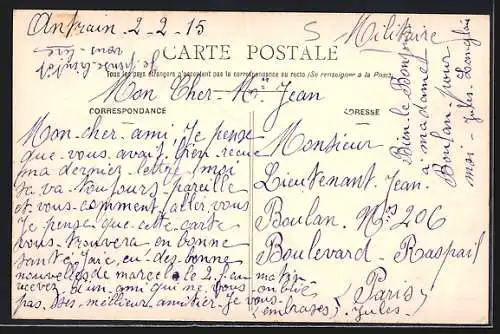 Antrain 2-2-15
S Militaire
CARTE POSTALE
Tous les pays étrangers n'acceptent pas la correspondance au recto (Se renseigner à la Poste)
Mon Cher Mr Jean
CORRESPONDANCE
ADRESSE
Mon cher ami, Je pense
que vous avait bien reçue
ma dernier lettre, moi
sa va toujours pareille
et vous comment aller vous
Je pense que cette carte
vous trouvera en bonne
santé, J'aie eu des bonne
nouvelles de marcel le 2 au matin
recevez d'un ami qui ne vous oublie
pas. ses meilleur amitier. Je vous
(embrasse) Jules.
Monsieur
Lieutenant Jean
Boulan. No 206
Boulevard Raspail
(Paris)
Bien le Bonjour
à madame
Boulan pour
moi - Jules